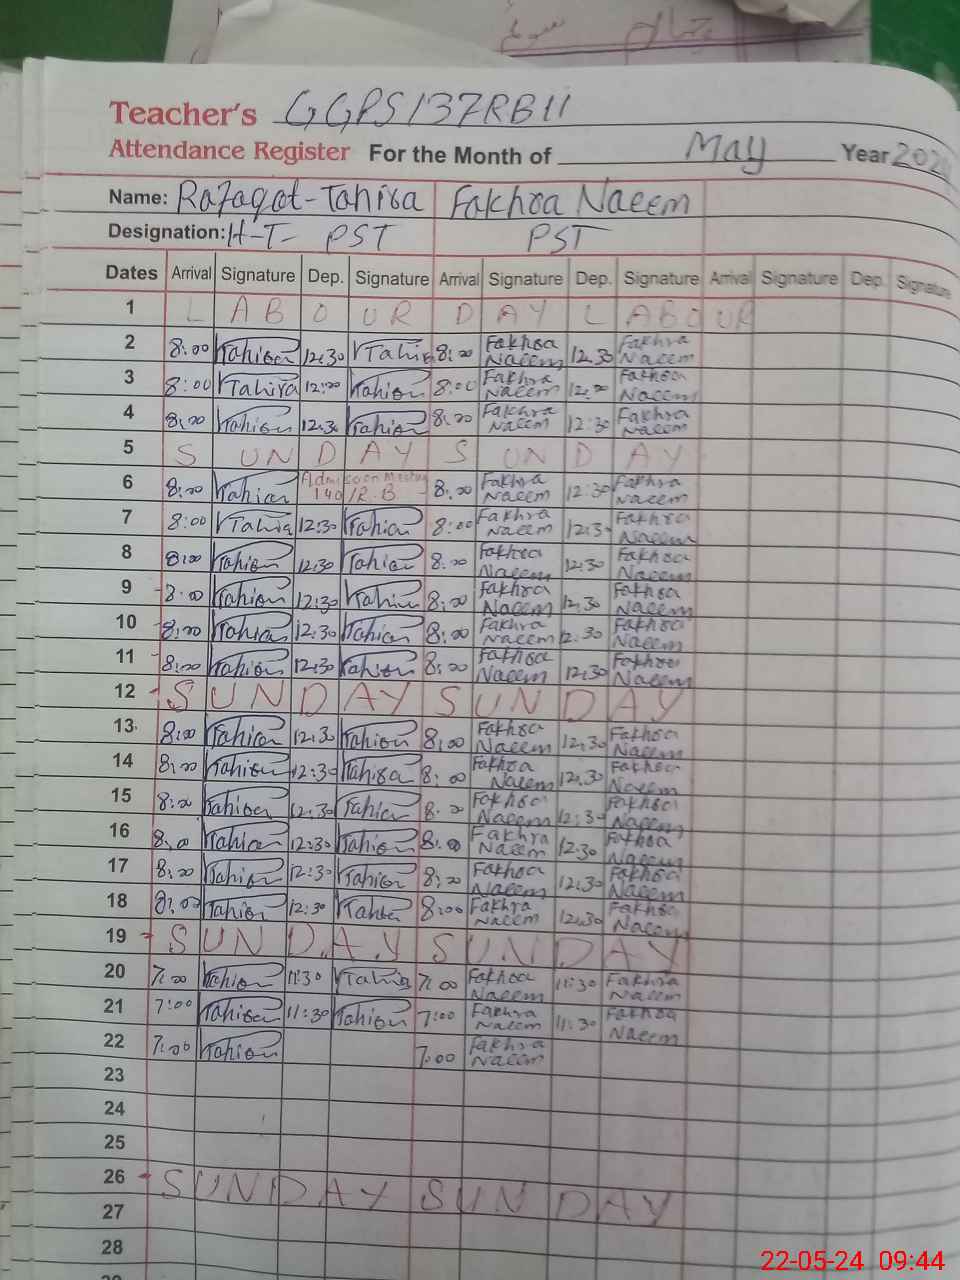 Teacher's GGPS137RBII
Attendance Register For the Month of May Year 202
Name: Rafaqat-Tahira Fakhra Naeem
Designation: H-T- PST PST
Dates Arrival Signature Dep. Signature Arrival Signature Dep. Signature Arrival Signature Dep. Signature
1 LABOUR DAY LABOUR
2 8:00 Tahira 12:30 Tahira 8:00 Fakhra Naeem 12:30 Fakhra Naeem
3 8:00 Tahira 12:00 Tahira 8:00 Fakhra Naeem 12:00 Fakhra Naeem
4 8:00 Tahira 12:30 Tahira 8:00 Fakhra Naeem 12:30 Fakhra Naeem
5 SUNDAY SUNDAY
6 8:00 Tahira 140/R.B 8:00 Fakhra Naeem 12:30 Fakhra Naeem
7 8:00 Tahira 12:30 Tahira 8:00 Fakhra Naeem 12:30 Fakhra Naeem
8 8:00 Tahira 12:30 Tahira 8:00 Fakhra Naeem 12:30 Fakhra Naeem
9 8:00 Tahira 12:30 Tahira 8:00 Fakhra Naeem 12:30 Fakhra Naeem
10 8:00 Tahira 12:30 Tahira 8:00 Fakhra Naeem 12:30 Fakhra Naeem
11 8:00 Tahira 12:30 Tahira 8:00 Fakhra Naeem 12:30 Fakhra Naeem
12 SUNDAY SUNDAY
13 8:00 Tahira 12:30 Tahira 8:00 Fakhra Naeem 12:30 Fakhra Naeem
14 8:00 Tahira 12:30 Tahira 8:00 Fakhra Naeem 12:30 Fakhra Naeem
15 8:00 Tahira 12:30 Tahira 8:00 Fakhra Naeem 12:30 Fakhra Naeem
16 8:00 Tahira 12:30 Tahira 8:00 Fakhra Naeem 12:30 Fakhra Naeem
17 8:00 Tahira 12:30 Tahira 8:00 Fakhra Naeem 12:30 Fakhra Naeem
18 8:00 Tahira 12:30 Tahira 8:00 Fakhra Naeem 12:30 Fakhra Naeem
19 SUNDAY SUNDAY
20 7:00 Tahira 11:30 Tahira 7:00 Fakhra Naeem 11:30 Fakhra Naeem
21 7:00 Tahira 11:30 Tahira 7:00 Fakhra Naeem 11:30 Fakhra Naeem
22 7:00 Tahira 7:00 Fakhra Naeem
23
24
25
26 SUNDAY SUNDAY
27
28
22-05-24 09:44